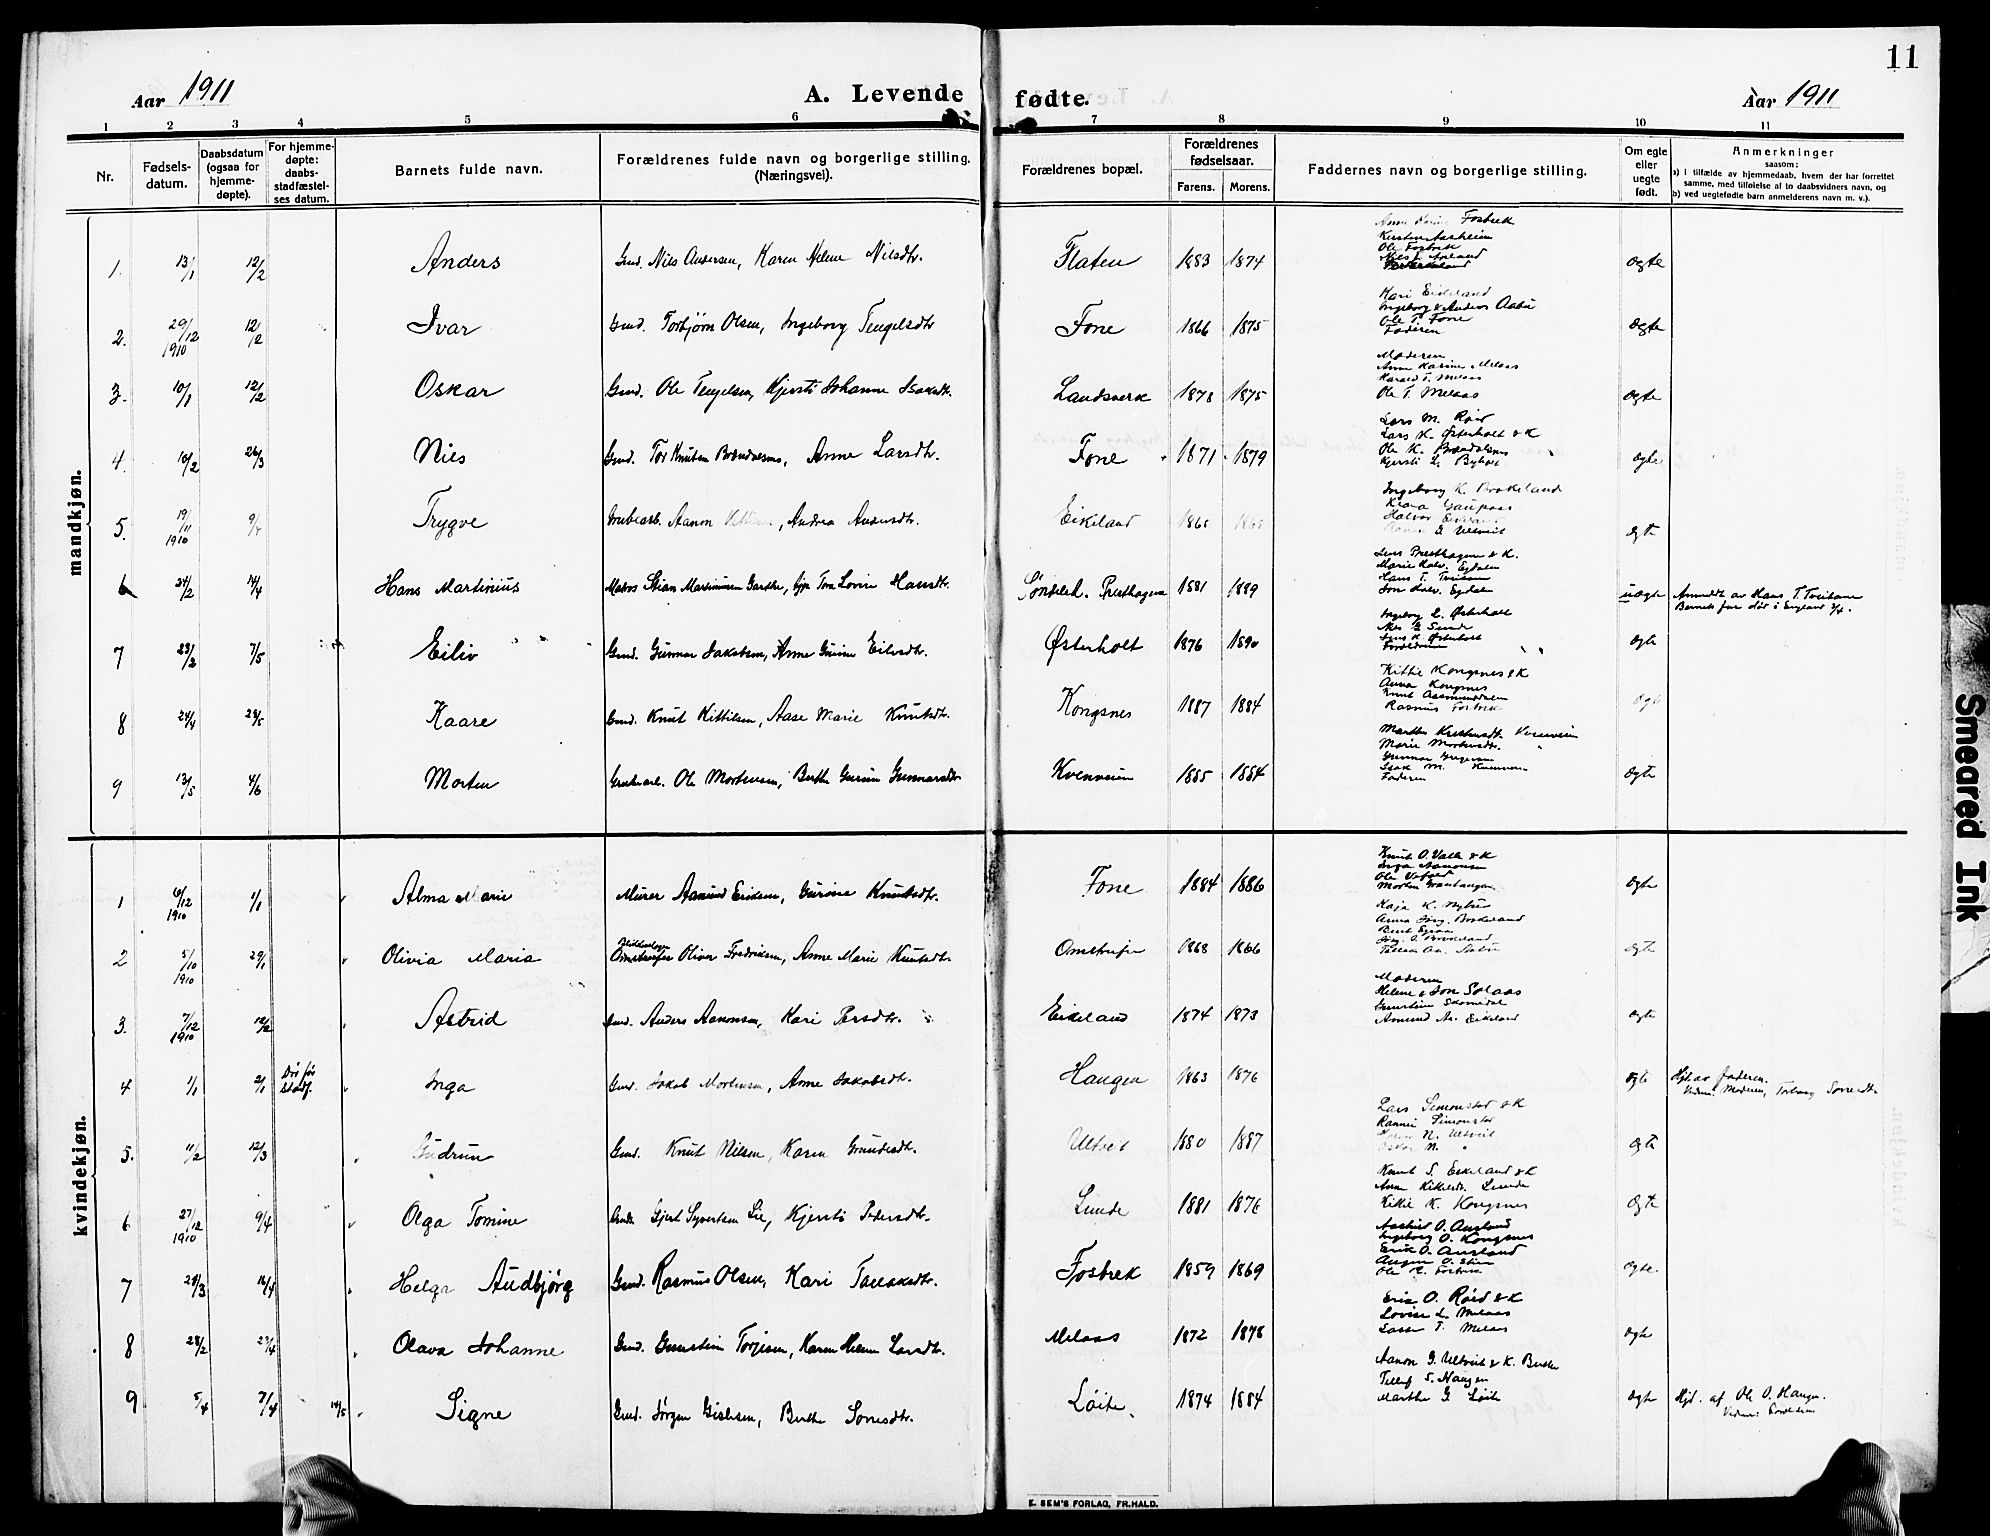 11
Aar 1911
A. Levende fødte.
Aar 1911
1 2 3 4 5 6 7 8 9 10 11
Nr.
Fødsels-
datum.
Daabsdatum
(ogsaa for
hjemme-
døpte).
For hjemme-
døpte:
daabs-
stadfæstel-
ses datum.
Barnets fulde navn.
Forældrenes fulde navn og borgerlige stilling.
(Næringsvei).
Forældrenes bopæl.
Forældrenes
fødselsaar.
Farens. Morens.
Faddernes navn og borgerlige stilling.
Om egte
eller
uegte
født.
Anmerkninger
saasom:
a) i tilfælde av hjemmedaab, hvem der har forrettet
samme, med tilføielse af to daabsvidners navn, og
b) ved uegtefødte barn anmelderens navn m. v.).
mandkjøn.
1. 13/1 12/2 Anders Gmd. Nils Andersen, Karen Helene Nilsdtr. Flaten 1883 1874 egte
Fosbrek
Ole Fosbrek
2. 29/12 1910 12/2 Ivar Gmd. Torbjørn Olsen, Ingeborg Tengelsdtr Fone 1866 1875 egte
Kari Eikeland
Ingeborg & Anders Aabø
Ole T. Fone
Faderen
3. 10/1 12/2 Oskar Gmd. Ole Tengelsen, Kjersti Johanne Isaksdtr. Landsverk 1878 1875 egte
Moderen
Anne Karine Melaas
Harald T. Melaas
Ole T. Melaas
4 10/2 26/3 Niels Gmd. Tor Knutsen, Anne Larsdtr. Fone 1871 1879 egte
Lars M. Røid
Lars K. Østerholt & K
Ole K.
Kjersti L.
5. 19/11 1910 9/4 Trygve Grubearb. Aanon, Andrea Andersdtr. Eikeland 1865 egte
Ingeborg K. Brokeland
Klara Gaupaas
G. Ultveit
6 24/2 14/4 Hans Martinius Matros Stian Martinusen, Tone Lovise Hansdtr. Søndeled. Presthagen 1881 1889 uegte
Jens Presthagen & K.
Marie Halv. Egdalen
Hans T. Treidene
Jon Halv. Egdalen
Anmeldt av Hans T. Treidene
Barnets far død i England
7 23/2 7/5 Eiliv Gmd. Gunnar Jakobsen, Anne Gurine Eilevsdtr. Østerholt 1876 1890 egte
Ingeborg L. Østerholt
Jens K. Østerholt
Forældrene
8 24/4 28/5 Kaare Gmd. Knut Kittilsen, Aase Marie Knutsdtr. Kongsnes 1887 1884 egte
Kittil Kongsnes & K
Anna Kongsnes
Knut Aasmundsen
Rasmus Fosbrek
9 13/5 4/6 Morten Grubearb. Ole Mortensen, Berthe Gurine Gunnarsdtr Kvenveien 1885 1884 egte
Marthe Kvenveien
Marie Mortensdtr. "
Gunnar Gregersen
Isak M. Kvenveien
Faderen
kvindekjøn.
1 6/12 1910 1/1 Alma Marie Murer Aamund Eriksen, Gurine Knutsdtr. Fone 1884 1886 egte
Knut O. Valle & K
Inga Aanonsen
Morten Granhaugen
2 5/10 1910 29/1 Olivia Maria Oliver Fredriksen, Anne Marie Knutsdtr Omstreifer 1868 1866 egte
Kaja K. Myhre
Anna Jørg. Brokeland
Jørg. O. Brokeland
3. 7/12 1910 12/2 Astrid Gmd. Anders Aanonsen, Kari Persdtr. Eikeland 1874 1873 egte
Moderen
Helene & Jon Solaas
Gunstein Skomedal
Asmund An. Eikeland
4 1/1 2/1 Død før stadf. Inga Gmd. Jakob Mortensen, Anne Jakobsdtr. Haugen 1863 1876 egte
Hjd. av faderen.
Vidner: Moderen, Torborg
5. 11/2 12/3 Gudrun Gmd. Knut Nilsen, Karen Gundersdtr. Ultveit 1880 1887 egte
Lars Simonstad & K
Rannei Simonstad
N. Ultveit
6 27/12 1910 9/4 Olga Tomine Gjert Syvertsen Lie, Kjersti Pedersdtr. Lunde 1881 1876 egte
Knut S. Eikeland & K
Anne Kittilsdtr. Lunde
Kittil K. Kongsnes
7 29/3 16/4 Helga Audbjørg Gmd. Rasmus Olsen, Kari Tallaksdtr. Fosbrek 1859 1869 egte.
O. Ausland
Ingeborg O. Kongsnes
Erik O. Ausland
Ole R. Fosbrek
8 28/2 23/4 Olava Johanne Gmd. Gunstein Torjusen, Karen Helene Larsdtr. Melaas 1872 1878 egte
Eric O. Røed & K
Lovise L. Melaas
Lasse T. Melaas
9 5/4 7/4 14/5 Signe Gmd. Jørgen Gislesen, Berthe Sonesdtr. Løite 1874 1884 egte
Aanon G. Ultveit & K. Berthe
Tellef S. Haugen
Marthe G. Løite
Hjd. af Ole O. Haugen.
Vidner: Forældrene
E. SEM'S FORLAG, FR.HALD.
Smeared Ink